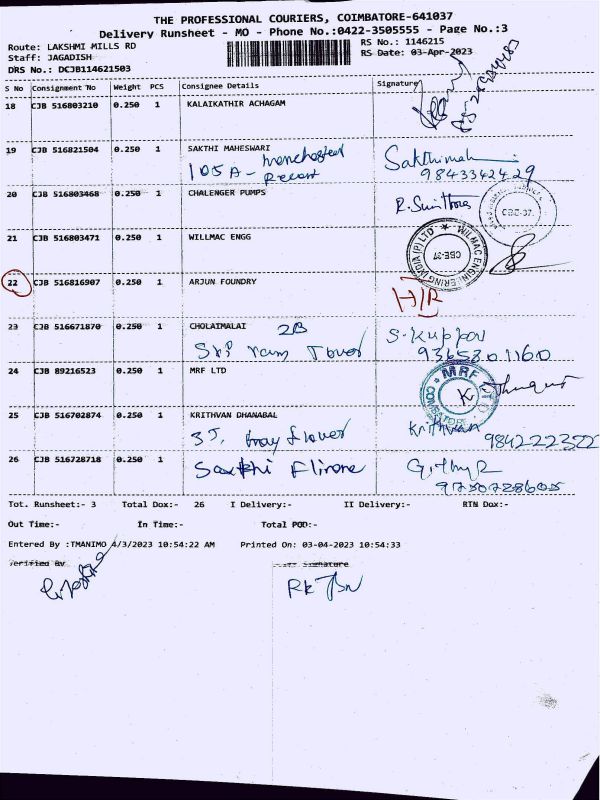 THE PROFESSIONAL COURIERS, COIMBATORE-641037
Delivery Runsheet - MO - Phone No.:0422-3505555 - Page No.:3
Route: LAKSHMI MILLS RD RS No.: 1146215
Staff: JAGADISH RS Date: 03-Apr-2023
DRS No.: DCJB114621503
S No Consignment No Weight PCS Consignee Details Signature
18 CJB 516803210 0.250 1 KALAIKATHIR ACHAGAM
19 CJB 516821504 0.250 1 SAKTHI MAHESWARI
105A - Sakthimah
9843342429
20 CJB 516803468 0.250 1 CHALENGER PUMPS R. Sunithra
CBE-37.
21 CJB 516803471 0.250 1 WILLMAC ENGG
WILMAC ENGINEERING INDIA (P) LTD
CBE-37
22 CJB 516816907 0.250 1 ARJUN FOUNDRY
H/R
23 CJB 516671870 0.250 1 CHOLAIMALAI 2B S. Kuppan
Sri ram Tower 9365301160
24 CJB 89216523 0.250 1 MRF LTD
MRF LTD
COIMBATORE
25 CJB 516702874 0.250 1 KRITHVAN DHANABAL Krithvan
3J, 9842222322
26 CJB 516728718 0.250 1
Sakthi
9750728605
Tot. Runsheet:- 3 Total Dox:- 26 I Delivery:- II Delivery:- RTN Dox:-
Out Time:- In Time:- Total POD:-
Entered By :TMANIMO 4/3/2023 10:54:22 AM Printed On: 03-04-2023 10:54:33
Verified By Signature